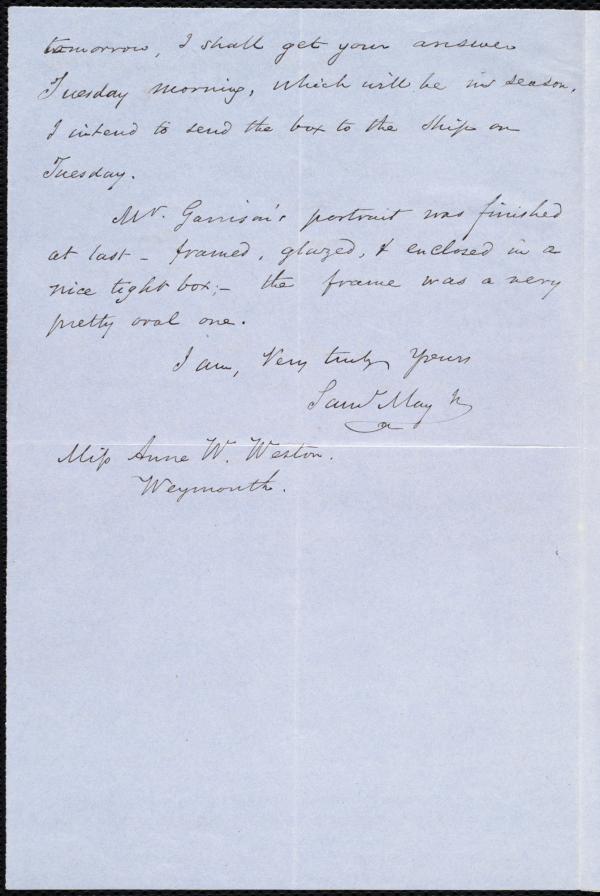 tomorrow, I shall get your answer
Tuesday morning, which will be in season.
I intend to send the box to the ship on
Tuesday.
Mr. Garrison's portrait was finished
at last – framed, glazed, & enclosed in a
nice tight box; – the frame was a very
pretty oval one.
I am, Very truly Yours
Saml May Jr
Miss Anne W. Weston.
Weymouth.